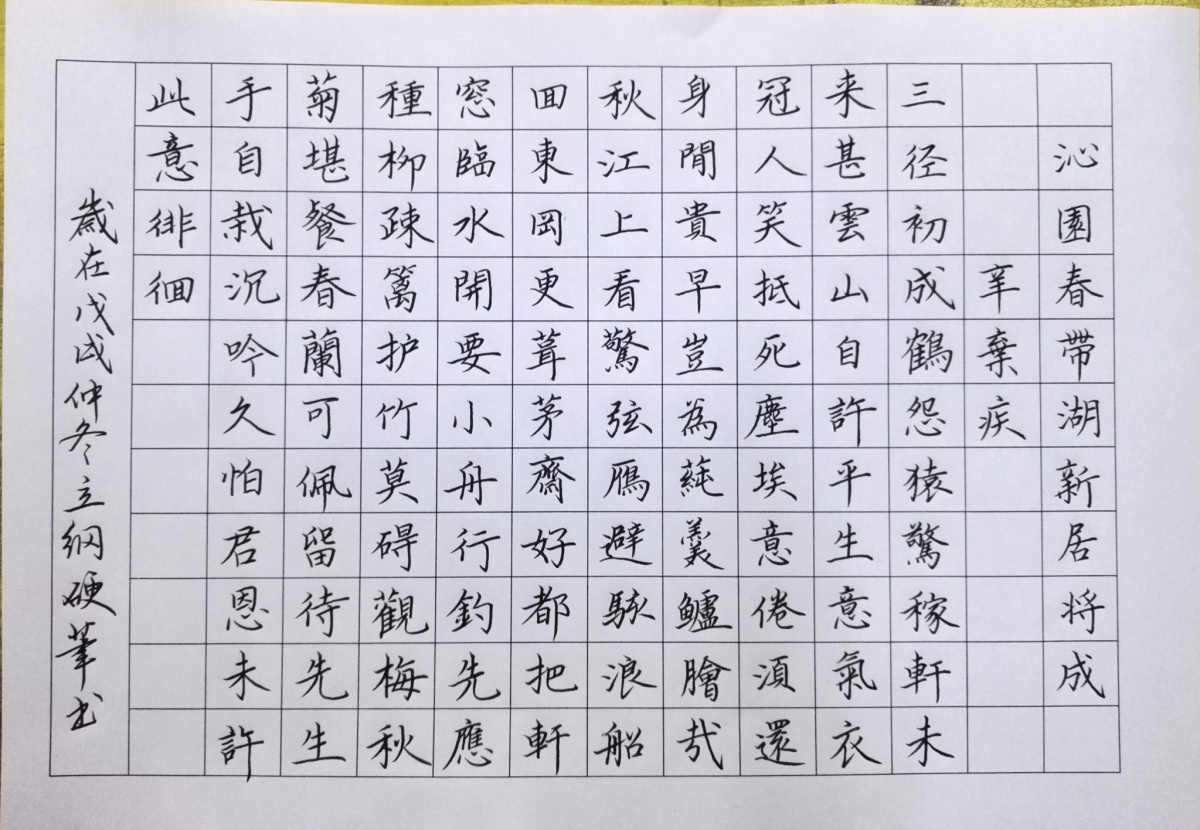 沁園春帶湖新居将成
辛棄疾
三径初成鶴怨猿驚稼軒未
来甚雲山自許平生意氣衣
冠人笑抵死塵埃意倦須還
身閒貴早豈為蓴羹鱸膾哉
秋江上看驚弦鴈避駭浪船
回東岡更葺茅齋好都把軒
窓臨水開要小舟行釣先應
種柳疎籬护竹莫碍觀梅秋
菊堪餐春蘭可佩留待先生
手自栽沉吟久怕君恩未許
此意徘徊
歲在戊戌仲冬立綱硬筆书